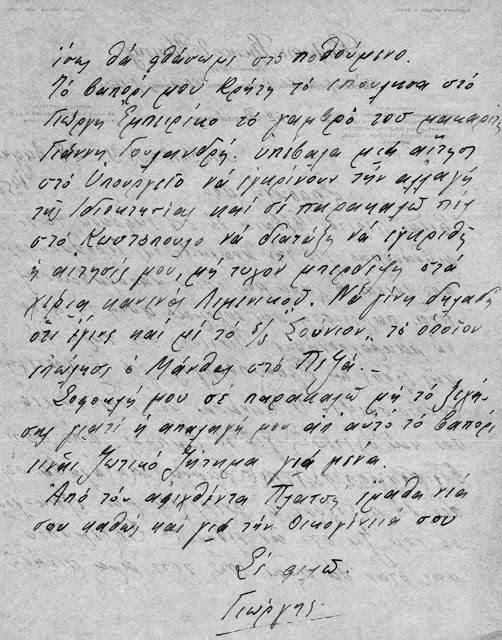 ίσως θά φθάσωμε στό ποθούμενο.
Τό βαπόρι μου Κρήτη τό επούλησα στό
Γιώργη Εμπειρίκο τό γαμβρό του μακαρίτη
Γιάννη Γουλανδρή. υπέβαλα μιά αίτηση
στό Υπουργείο νά εγκρίνουν τήν αλλαγή
της Ιδιοκτησίας καί σέ παρακαλώ πές
στό Κωστόπουλο νά διατάξη νά εγκριθή
ή αίτησίς μου, μή τυχόν μπερδεψη στά
χέρια κανενός Λιμενικού. Νά γίνη δηλαδή
ότι έγινε καί μέ τό s/s "Σουνιον" τό οποίον
επώλησε ο Μάνθος στό Πεζά. _
Σοφοκλή μου σέ παρακαλώ μή τό ξεχή
σης γιατί ή απαλαγή μου απ αυτό τό βαπόρι
είναι ζωτικό ζήτημα γιά μένα.
Από τόν αφιχθέντα Πλατση έμαθα νέα
σου καθώς καί γιά τήν Οικογένειά σου
Σέ φιλώ.
Γιώργης.